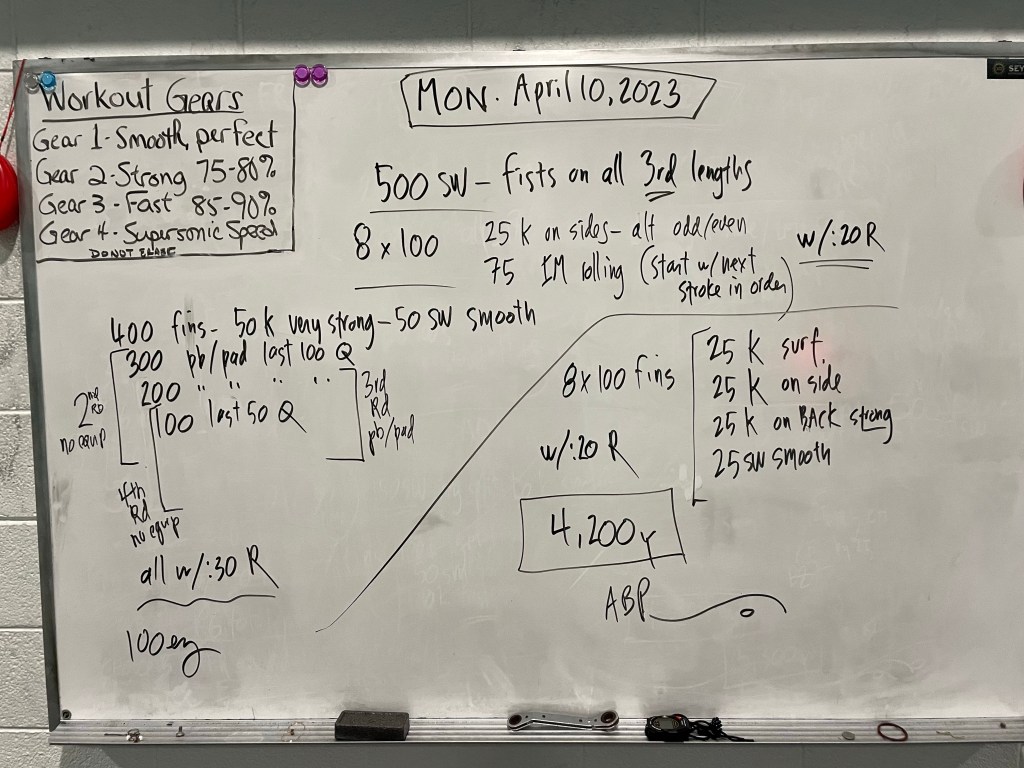 Workout Gears
Gear 1-Smooth, perfect
Gear 2-Strong 75-80%
Gear 3-Fast 85-90%
Gear 4-Supersonic Speed
DO NOT ERASE
MON. April 10, 2023
500 SW - fists on all 3rd lengths
8 x 100
25 K on sides - alt odd/even
75 IM rolling (start w/ next
stroke in order)
w/:20 R
400 fins - 50 K very strong - 50 SW smooth
300 pb/pad last 100 Q
200 " " " "
100 last 50 Q
2nd
RD
no equip
3rd
Rd
pb/pad
4th
Rd
no equip
all w/:30 R
100 ez
8x100 fins
w/:20 R
25 K surf.
25 K on side
25 K on BACK strong
25 SW smooth
4,200y
ABP
SEY